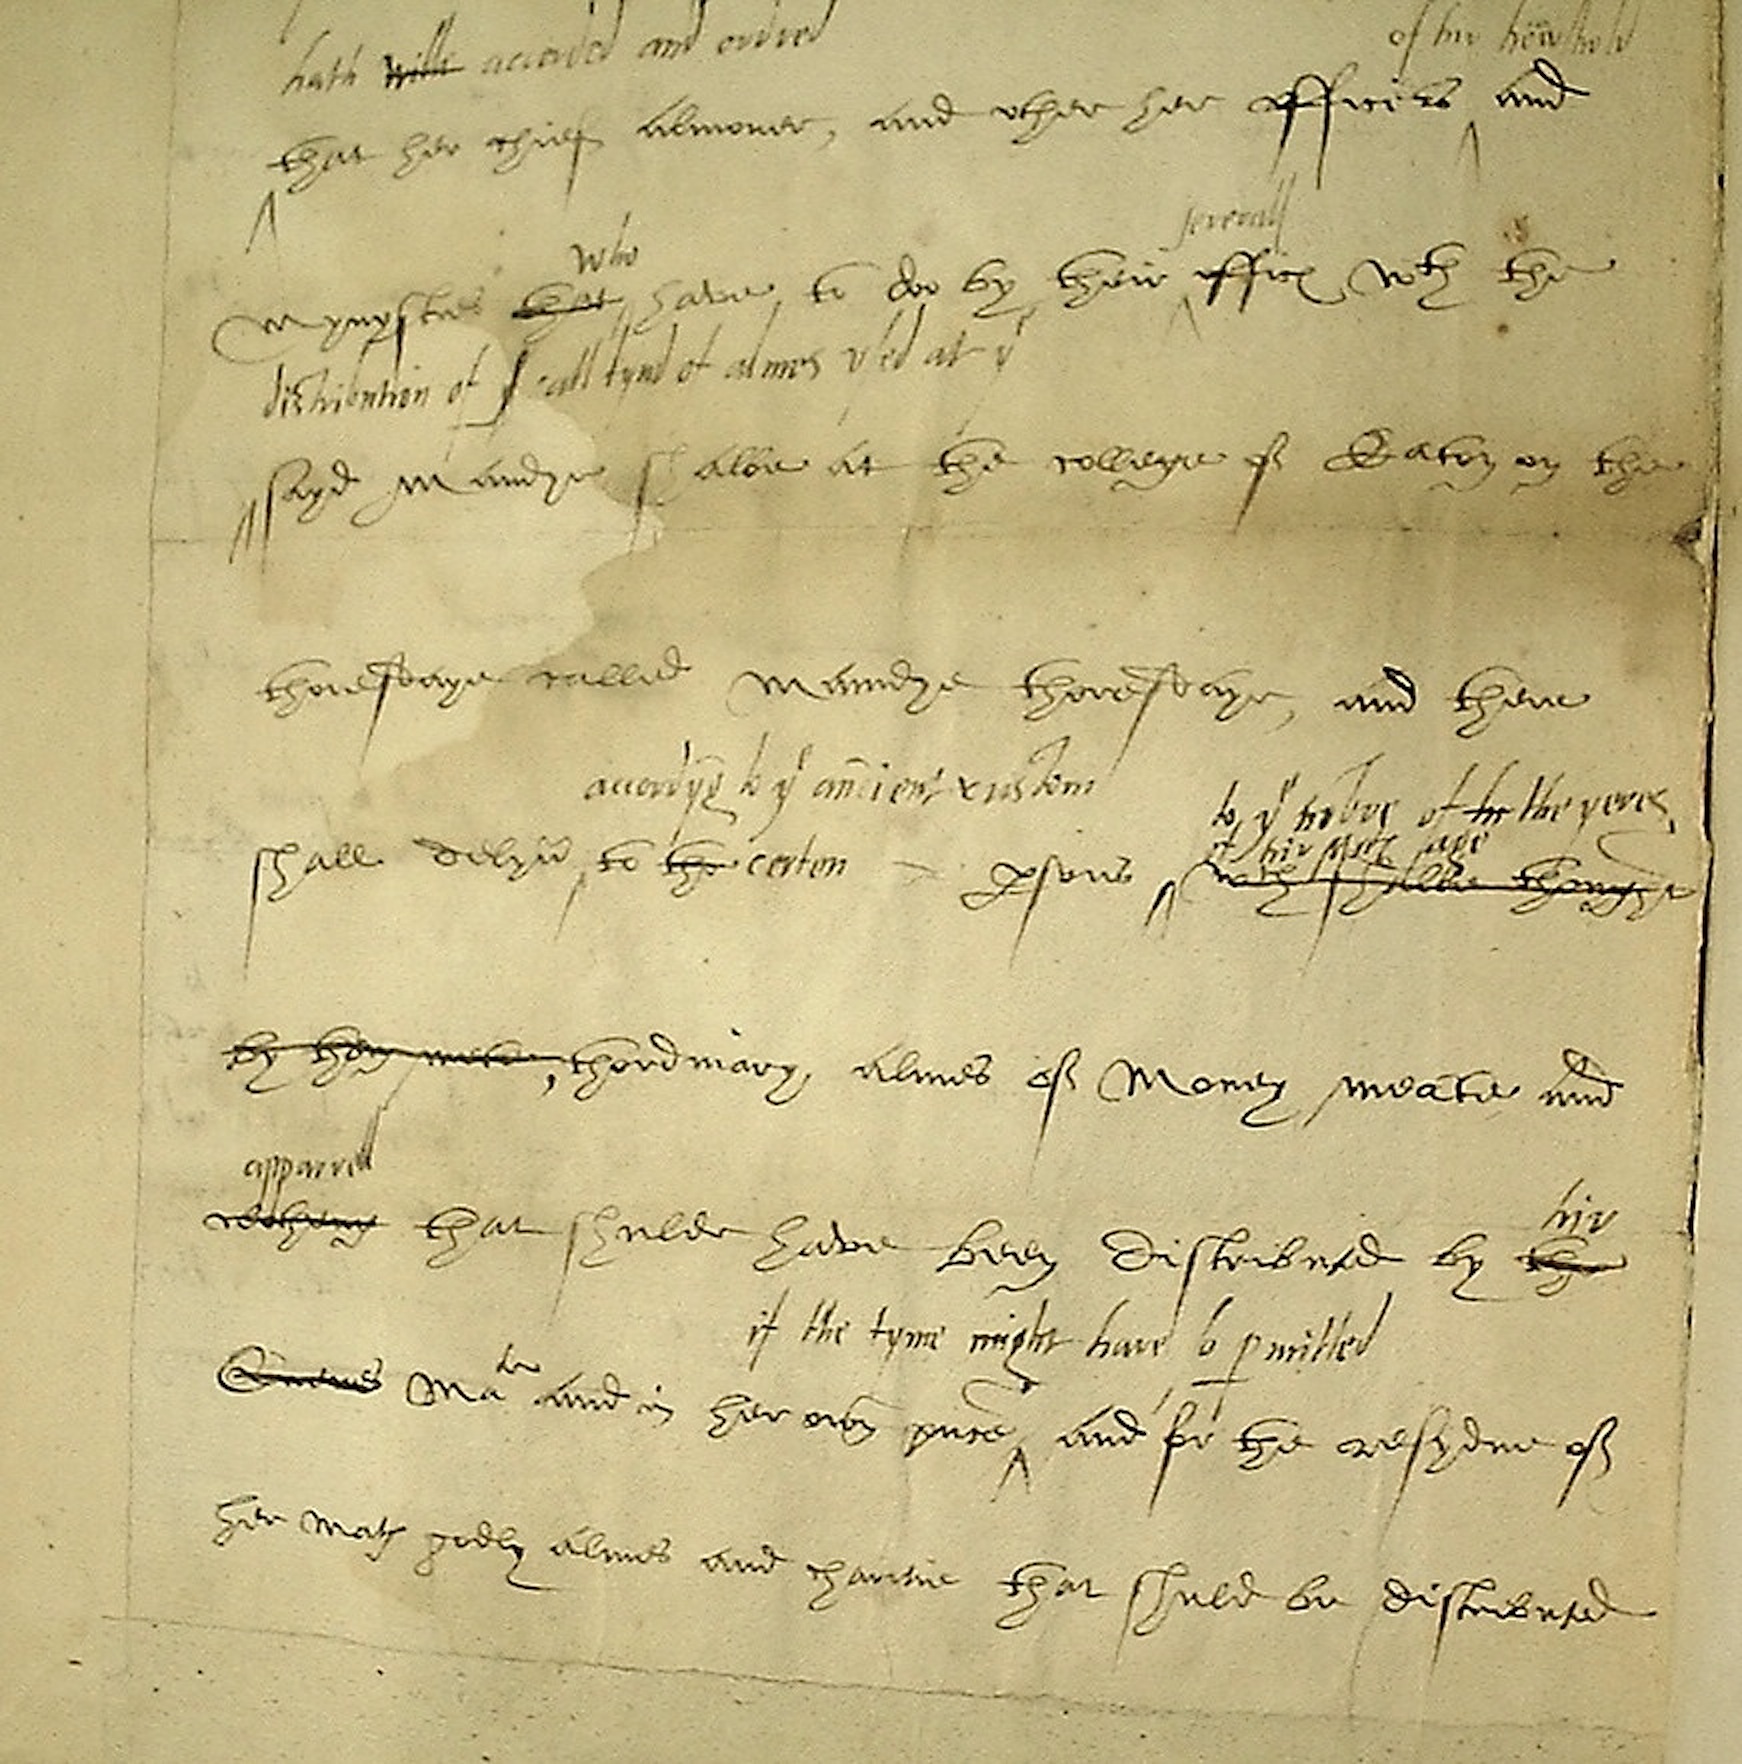 hath will accorded and ordred of hir howshold
that her chief almoner, and other her officers and
who severall
mynysters that have to doo by their office wth the
distribution of all kynd of almes vsed at ye
sayd Maundye shalbe at the college of Eaton on the
thoresdaye called Maundye thoresdaye, and there
accordyng to ye ancient custom to ye nōbre of hir the yeres
of hir age
shall delyver to the certen persons wch shalbe thought
by hym mete, thordinary almes of Money meate and
apparrell
clothyng that shulde have been distributed by the hir
if the tyme might have so permitted
Quenes Matie and in her own presence and for the resydue of
her Mats godly almes and charitie that shuld be distributed